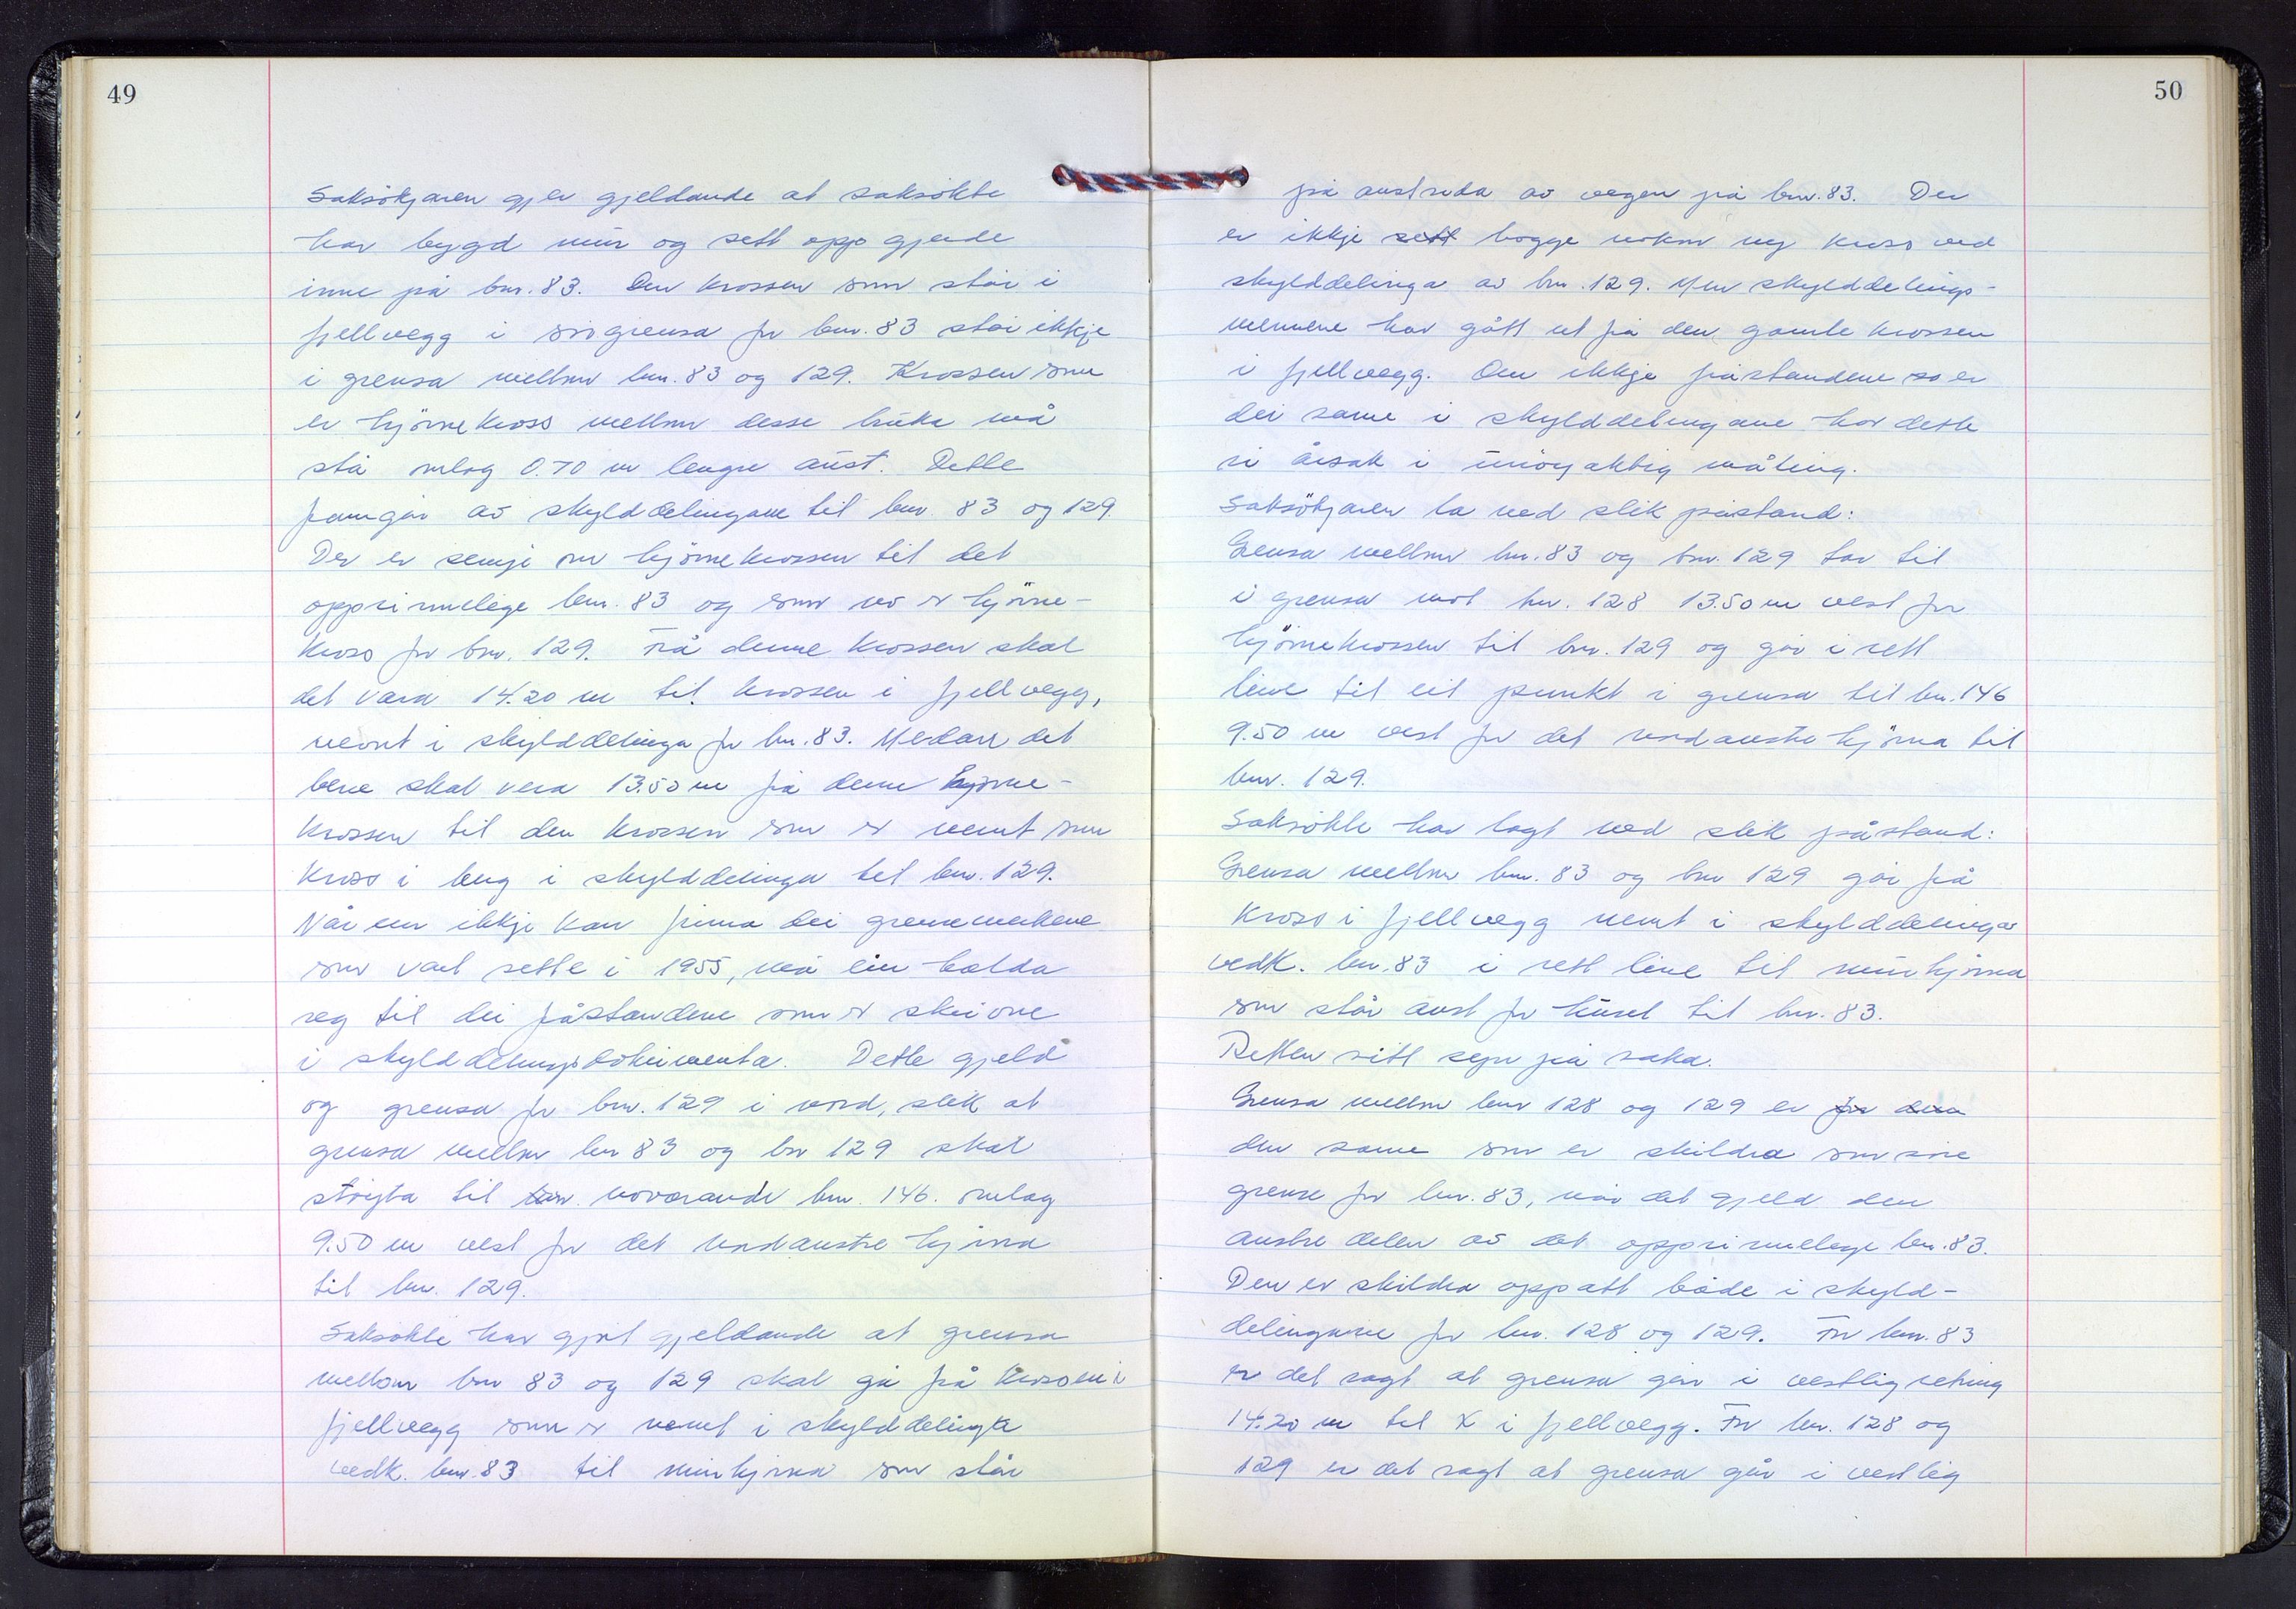 49
Saksökjaren gjer gjeldande at saksökte
har bygd mur og sett opp gjerde
inne på bnr. 83. Den krossen som står i
fjellvegg i sørgrensa for bnr. 83 står ikkje
i grensa mellom bnr. 83 og 129. Krossen som
er hjörnekross mellom desse bruka må
stå omlag 0.70 m lengre aust. Dette
framgår av skylddelingane til bnr. 83 og 129.
Der er semje om hjörnekrossen til det
opprinnelege bnr. 83 og som no er hjörne-
kross for bnr. 129. Frå denne krossen skal
det vera 14.20 m til krossen i fjellvegg,
nemt i skylddelinga for bnr. 83. Medan det
bere skal vera 13.50 m frå denne hjörne-
krossen til den krossen som er nemt som
kross i berg i skylddelinga til bnr. 129.
Når ein ikkje kan finna dei grensemerkene
som vart sette i 1955, må ein halda
seg til dei påstandene som er skrivne
i skylddelingsdokumenta. Dette gjeld
og grensa for bnr. 129 i nord, slik at
grensa mellom bnr 83 og bnr 129 skal
støyta til bnr. noverande bnr. 146. omlag
9.50 m vest for det nordaustre hjørna
til bnr. 129.
Saksökte har gjort gjeldande at grensa
mellom bnr 83 og 129 skal gå frå krossen i
fjellvegg som er nemt i skylddelinga
vedk. bnr. 83 til murhjørna som står
50
på austsida av vegen på bnr. 83. Der
er ikkje sett hogge nokon ny kross ved
skylddelinga av bnr. 129. Men skylddelings-
mennene har gått ut frå den gamle krossen
i fjellvegg. Om ikkje påstandene so er
dei same i skylddelingane har dette
si årsak i unöyaktig måling.
Saksökjaren la ned slik påstand:
Grensa mellom bnr. 83 og bnr. 129 tar til
i grensa mot bnr. 128 13.50 m vest for
hjörnekrossen til bnr. 129 og går i rett
line til eit punkt i grensa til bnr. 146
9.50 m vest for det nordaustre hjörna til
bnr. 129.
Saksökte har lagt ned slik påstand:
Grensa mellom bnr. 83 og bnr 129 går frå
kross i fjellvegg nemt i skylddelinga
vedk. bnr. 83 i rett line til murhjørna
som står aust for huset til bnr. 83.
Retten sitt syn på saka.
Grensa mellom bnr 128 og 129 er for den
den same som er skildra som søre
grense for bnr. 83, når det gjeld den
austre delen av det opprinnelege bnr. 83.
Den er skildra oppatt både i skyld-
delingane for bnr. 128 og 129. For bnr. 83
er det sagt at grensa går i vestlig retning
14.20 m til X i fjellvegg. For bnr. 128 og
129 er det sagt at grensa går i vestlig